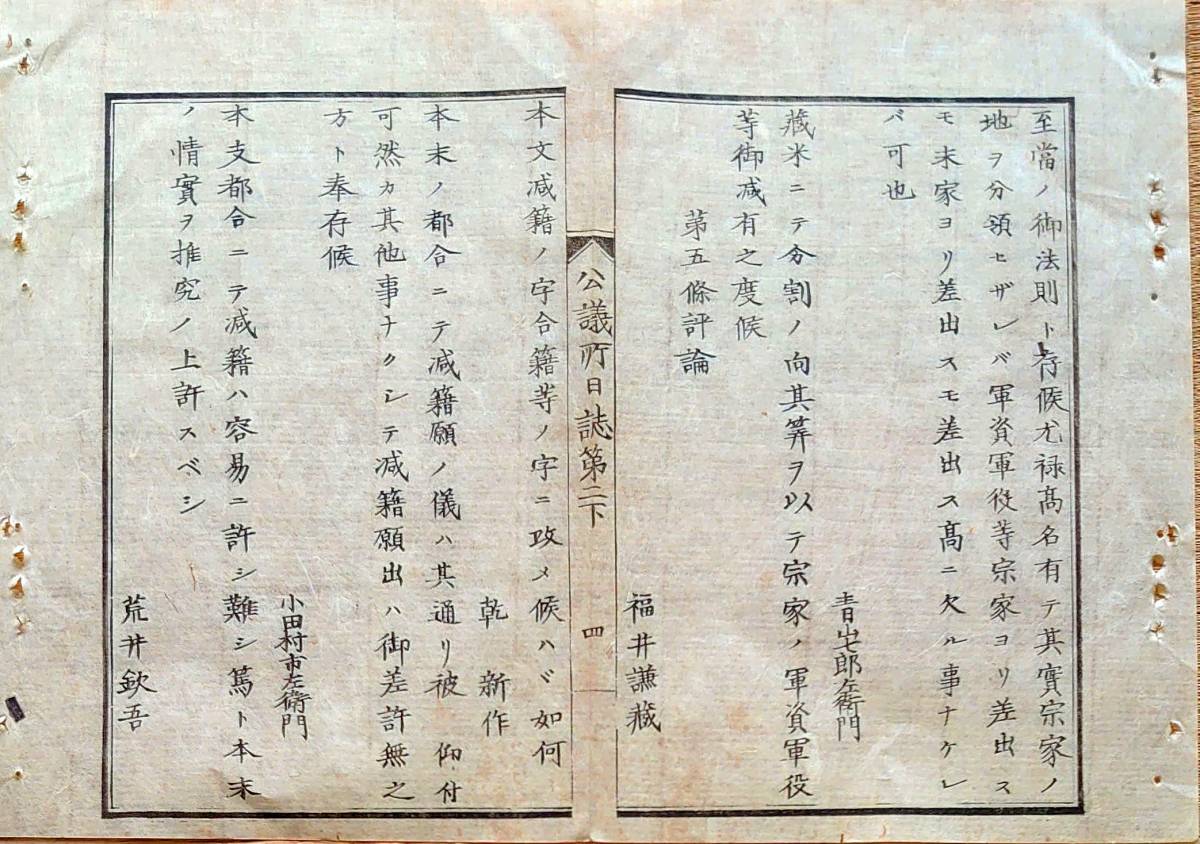 至當ノ御法則ト存候尤禄髙名有テ其實宗家ノ
地ヲ分領セザレバ軍資軍役等宗家ヨリ差出ス
モ末家ヨリ差出スモ差出ス髙ニ欠ル事ナケレ
バ可也
青山郎左衛門
藏米ニテ分割ノ向其筭ヲ以テ宗家ノ軍資軍役
等御减有之度候
福井謙藏
第五條評論
公議所日誌第二下
四
本文减籍ノ字合籍等ノ字ニ攺メ候ハヾ如何
乾新作
本末ノ都合ニテ减籍願ノ儀ハ其通リ被仰付
可然カ其他事ナクシテ减籍願出ハ御差許無之
方ト奉存候
小田村市左衛門
本支都合ニテ减籍ハ容易ニ許シ難シ篤ト本末
ノ情實ヲ推究ノ上許スベシ
荒井欽吾